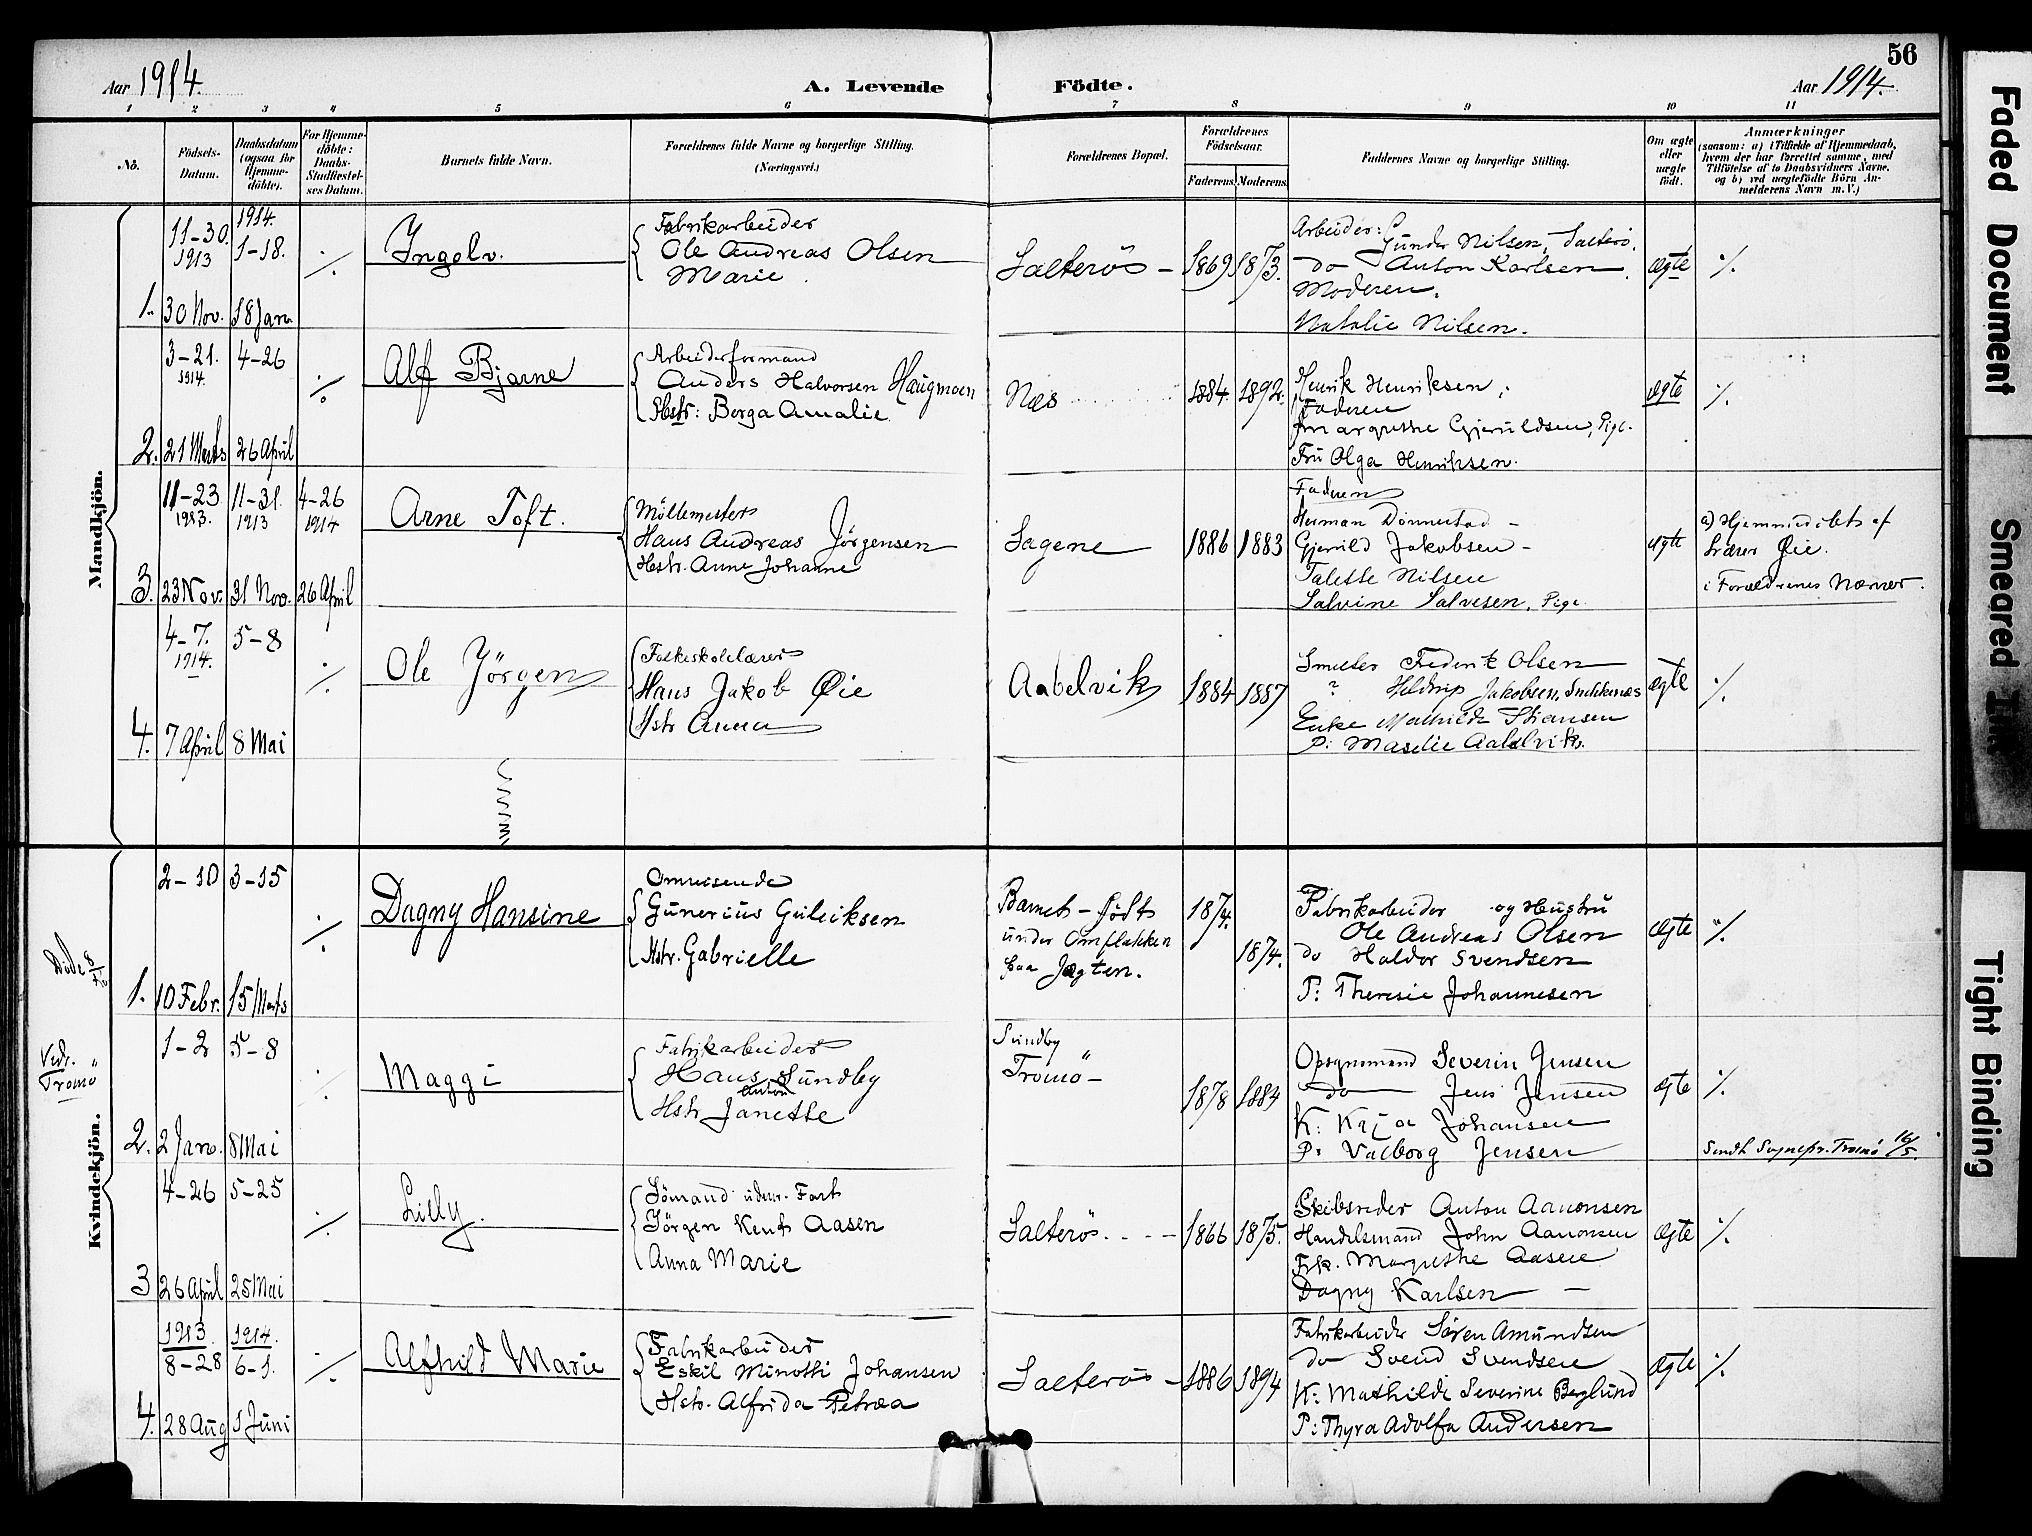 56
Aar 1914.
A. Levende Födte.
Aar 1914.
1 2 3 4 5 6 7 8 9 10 11
No.
Födsels-Datum.
Daabsdatum (ogsaa for Hjemme-döbte).
For Hjemme-döbte: Daabs-Stadfæstel-ses Datum.
Barnets fulde Navn.
Forældrenes fulde Navne og borgerlige Stilling.
(Næringsvei.)
Forældrenes Bopæl.
Forældrenes Födselsaar.
Faderens. Moderens.
Faddernes Navne og borgerlige Stilling.
Om ægte eller uægte födt.
Anmærkninger
(saasom: a) i Tilfælde af Hjemmedaab, hvem der har forrettet samme, med Tilföielse af to Daabsvidners Navne, og b) ved uægtefödte Börn An-melderens Navn m. V.)
Mandkjön.
1.
11-30. 1913
30 Nov.
1914. 1-18.
18 Jan.
./.
Ingolv.
Fabrikarbeider
Ole Andreas Olsen
Marie.
Salterös -
1869 1873.
Arbeider: Gunder Nilsen, Salterö.
do Anton Karlsen.
Moderen.
Natalie Nilsen.
ægte
./.
2.
3-21. 1914.
21 Marts
4-26
26 April
./.
Alf Bjarne
Arbeiderformand
Anders Halvorsen Haugmoen
Hstr: Borga Amalie.
Næs
1884. 1892.
Henrik Henriksen,
Faderen
Margrethe Gjeruldsen, Pige.
Fru Olga Henriksen.
ægte
./.
3.
11-23 1913.
23 Nov.
11-31. 1913
31 Nov.
4-26 1914
26 April
Arne Toft.
Möllemester
Hans Andreas Jörgensen
Hstr. Anne Johanne
Sagene
1886 1883
Faderen
Herman Dönnestad -
Gjerulld Jakobsen -
Talette Nilsen
Salvine Salvesen, Pige.
ægte
a) Hjemmedöbt af
Lærer Øie.
i Forældrenes Nærvær.
4.
4-7. 1914.
7 April
5-8
8 Mai
./.
Ole Jörgen
Folkeskolelærer
Hans Jakob Øie
Hstr Anna
Aabelvik
1884 1887
Smelter Frederik Olsen
" Jakobsen,
Enke Mathilde Stiansen
P: Maselie Aabelvik.
ægte
./.
Kvindekjön.
Döbe 8/
1.
2-10
10 Febr.
3-15
15 Marts
./.
Dagny Hansine
Omreisende
Gunerius Guleiksen
Hstr. Gabrielle
Barnet - födt
under Omflakken
paa Jagten.
1874.
1874.
Fabrikarbeider og Hustru
Ole Andreas Olsen
do Haldor Svendsen
P: Theresie Johannesen
ægte
./.
Vedr. "
Tromö
2.
1-2
2 Jan.
5-8
8 Mai
./.
Maggi
Fabrikarbeider
Hans Anton Sundby
Hstr Janette
Sundby
Tromö -
1878 1884
Opsynsmand Severin Jensen
do Jens Jensen
K: Kaja Johansen
P: Valborg Jensen
ægte
./.
Sendt Sognepr. Tromö 16/5.
3
4-26
26 April
5-25
25 Mai
./.
Lilly.
Sömand udenr. Fart
Jörgen Kent Aasen
Anna Marie
Salterö. - - -
1866 1875.
Skibsreder Anton Aanonsen
Handelsmand John Aanonsen
Frk. Margrethe Aasen
Dagny Karlsen -
ægte
./.
4.
1913 8-28
28 Aug
1914. 6-1.
1 Juni
./.
Alfhild Marie
Fabrikarbeider
Eskil Minotti Johansen
Hstr. Alfrida Petræa
Salterös -
1886 1894
Fabrikarbeider Sören Amundsen
do Svend Svendsen
K: Mathilde Severine Berglund
P: Thyra Adolfa Andersen
ægte
./.
Faded Document
Smeared Ink
Tight Binding